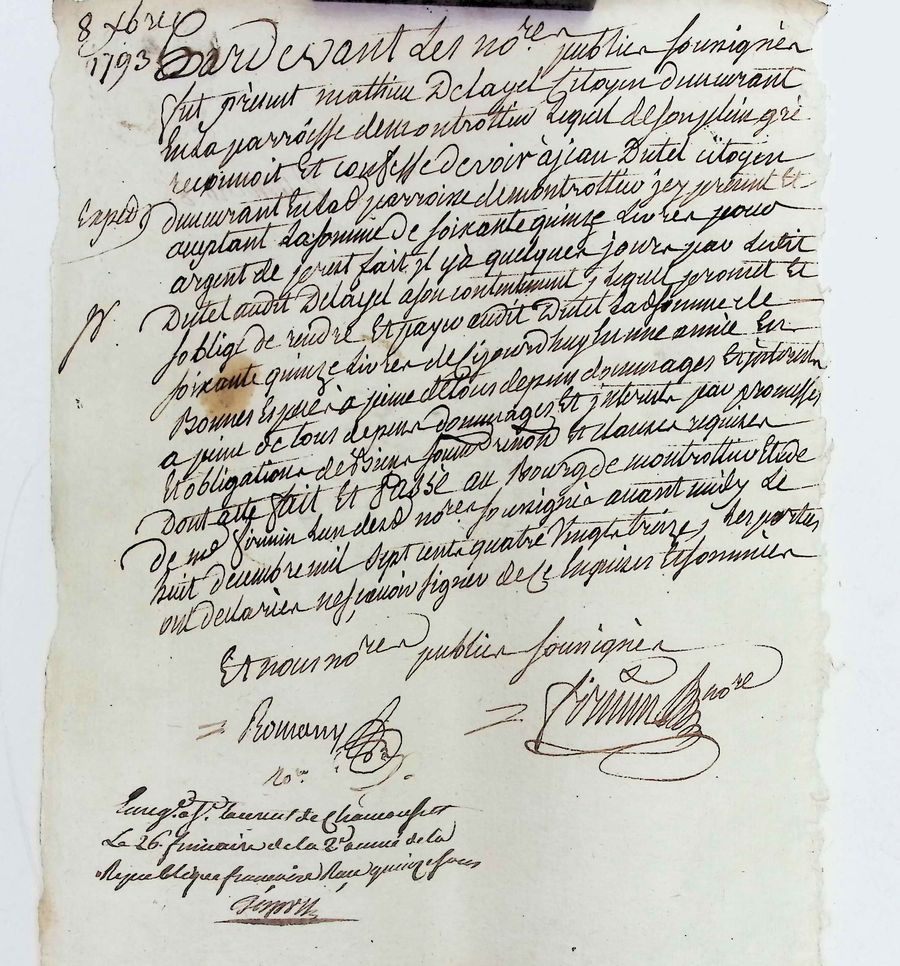 8 xbre
1793
Pardevant les nores publics soussignés
fut présent mathieu Delayel Citoyen demeurant
En la parroisse de montrottier Lequel de son plein gré
reconnoit Et confesse devoir à jean Dutel citoyen
Exped
demeurant En lad parroisse de montrottier jcy présent Et
aceptant La somme de soixante quinze Livres pour
argent de prest fait jl y à quelques jours par Ledit
Dutel audit Delayel a son contentement, lequel promet Et
s'oblige de rendre Et payer audit Dutel Lad somme de
soixante quinze Livres de Cejourd'huy En une année En
Bonnes Espèces à peine de tous depens dommages Et jnterets
a peine de tous depens dommages Et jnterets par promesses
Et obligations de Biens Et clauses requises
Dont acte fait Et Passé au Bourg de montrottier Etude
De me firmin L'un desd nores soussignés avant midy Le
huit decembre mil sept cent quatre Vingts treize, Les parties
ont declarées ne sçavoir signer de Ce Enquises Et sommées
Et nous nores publics soussignés
Romany
nore
firmin nore
Enregé a St Laurent de Chamousset
Le 26 frimaire de la 2e année de la
Republique francoise Reçu quinze sous